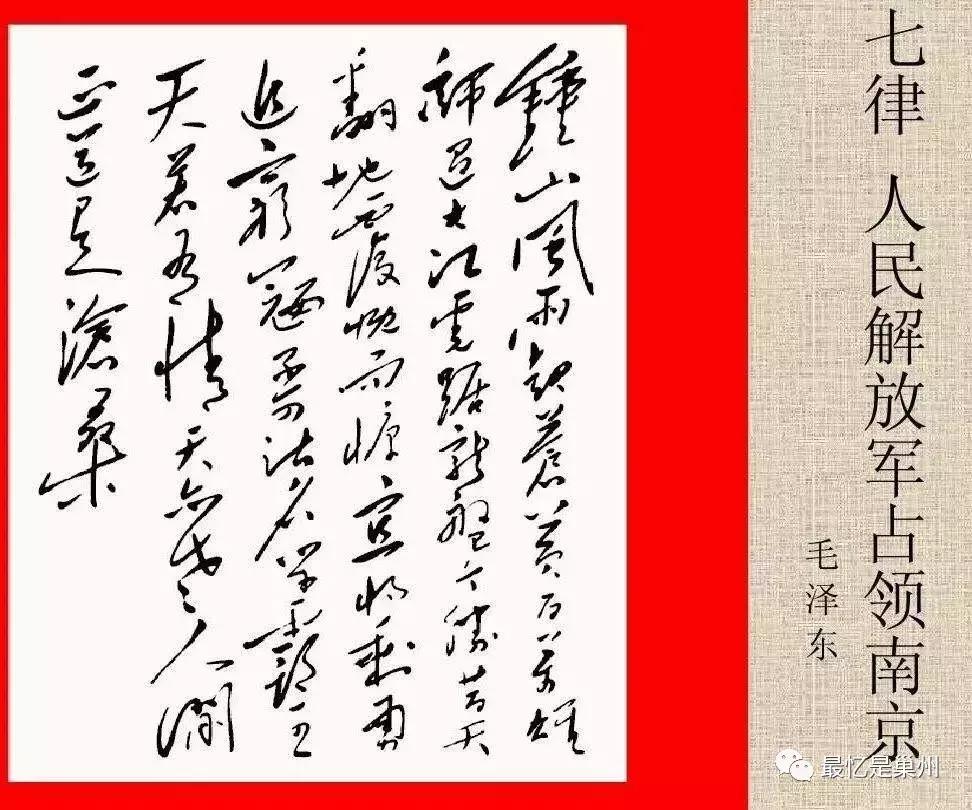 七律 人民解放军占领南京
毛泽东
鍾山風雨起蒼黃百萬雄
師過大江虎踞龍盤今勝昔天
翻地覆慨而慷宜將剩勇
追窮寇不可沽名學霸王
天若有情天亦老人間
正道是滄桑
最忆是巢州